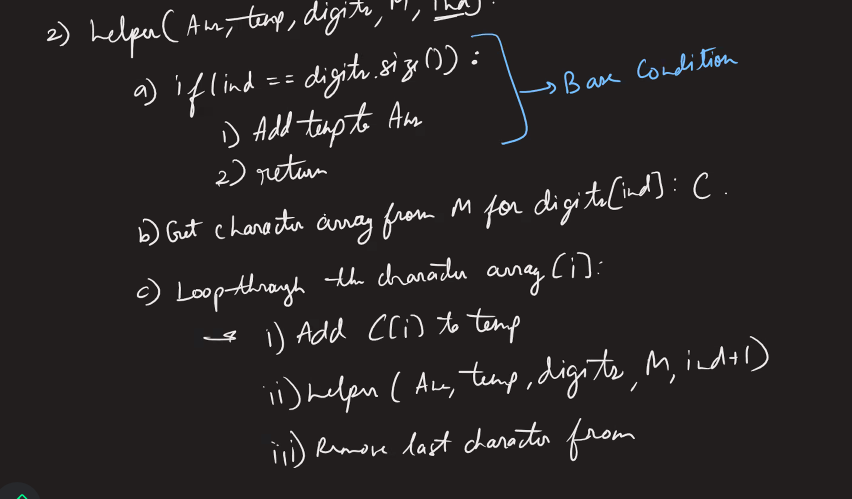 2) helper( Ans, temp, digits, M, ind) :
a) if(ind == digits.size()) :
→ Base Condition
1) Add temp to Ans
2) return
b) Get character array from M for digits[ind] : C .
c) Loop through the character array [i]:
→ i) Add C[i] to temp
ii) helper ( Ans, temp, digits, M, ind+1)
iii) Remove last character from